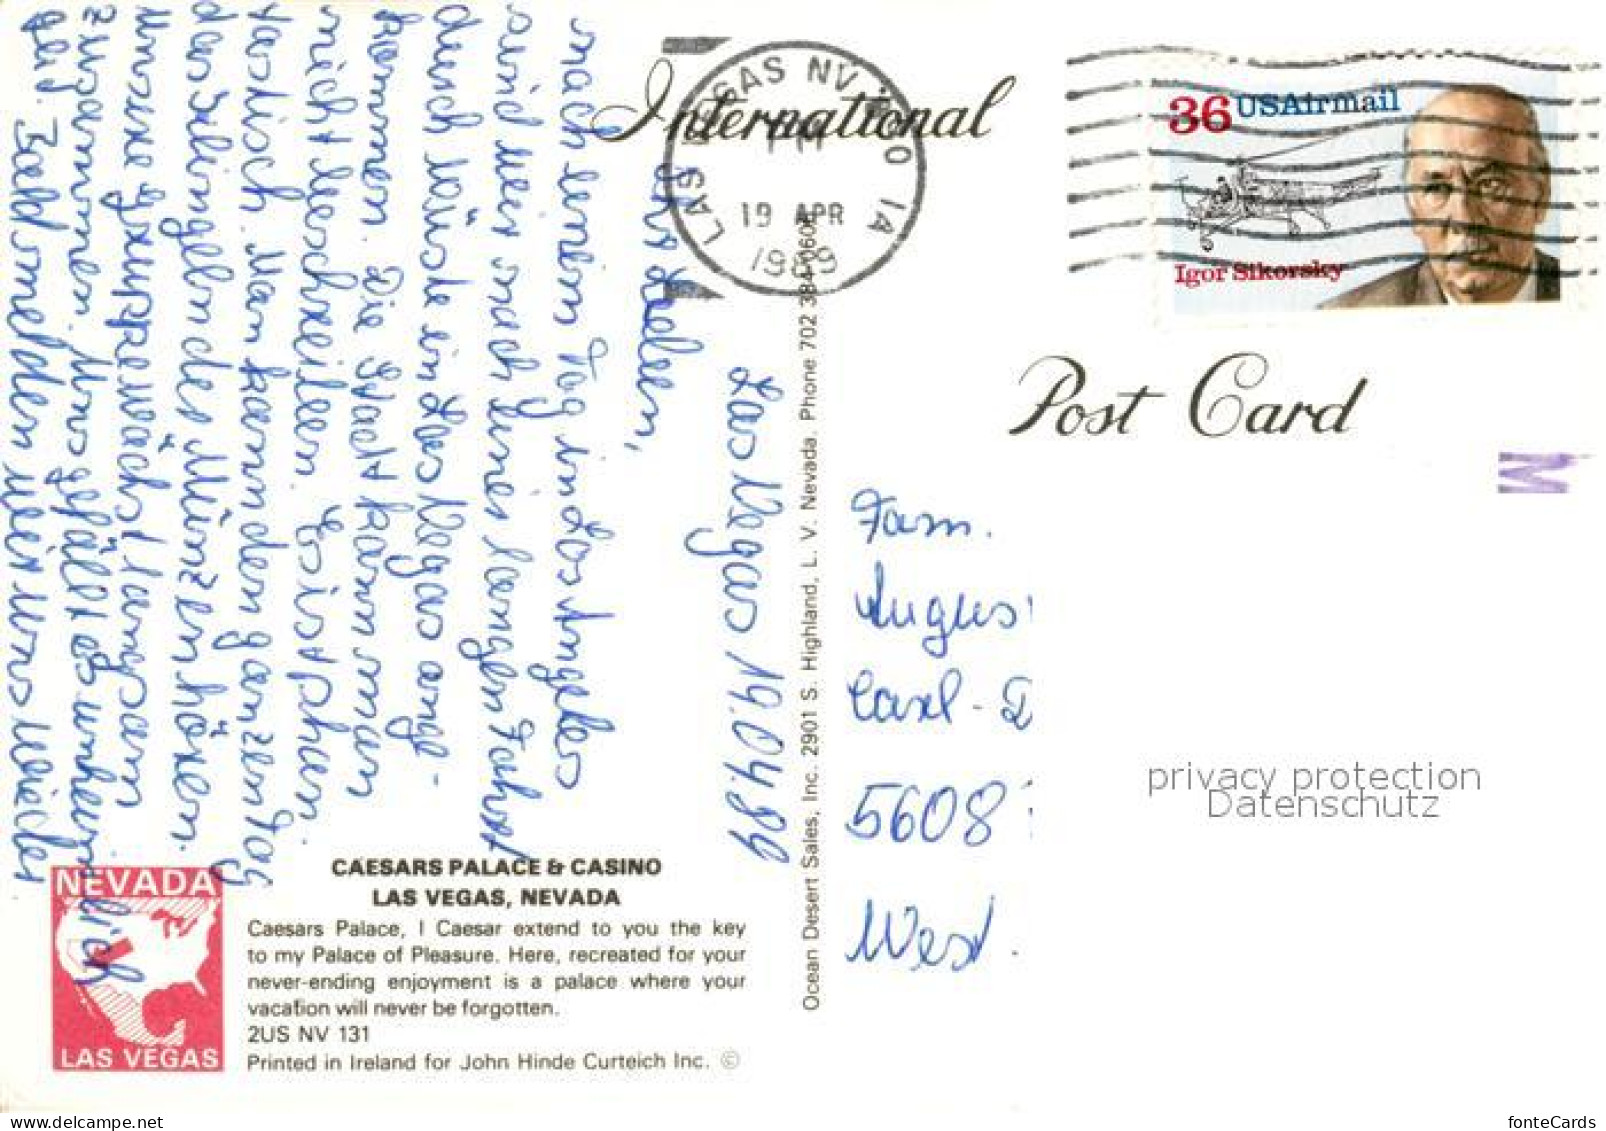 International
LAS VEGAS NV
PM
19 APR
1989
36 USAirmail
Igor Sikorsky
Post Card
M
Las Vegas 19.04.89
Ihr Lieben,
nach einem Tag in Los Angeles
sind wir nach einer langen Fahrt
durch Wüste in Las Vegas ange-
kommen. Die Stadt kann man
nicht beschreiben. Es ist phan-
tastisch. Man kann den ganzen Tag
das Klingeln der Münzen hören.
Unsere Gruppe wächst langsam
zusammen. Uns gefällt es unheimlich
gut. Bald melden wir uns wieder
Fam.
Augus
Carl-D
5608
West.
privacy protection
Datenschutz
Ocean Desert Sales, Inc. 2901 S. Highland, L. V. Nevada. Phone 702
NEVADA
LAS VEGAS
CAESARS PALACE & CASINO
LAS VEGAS, NEVADA
Caesars Palace, I Caesar extend to you the key
to my Palace of Pleasure. Here, recreated for your
never-ending enjoyment is a palace where your
vacation will never be forgotten.
2US NV 131
Printed in Ireland for John Hinde Curteich Inc. ©
fonteCards